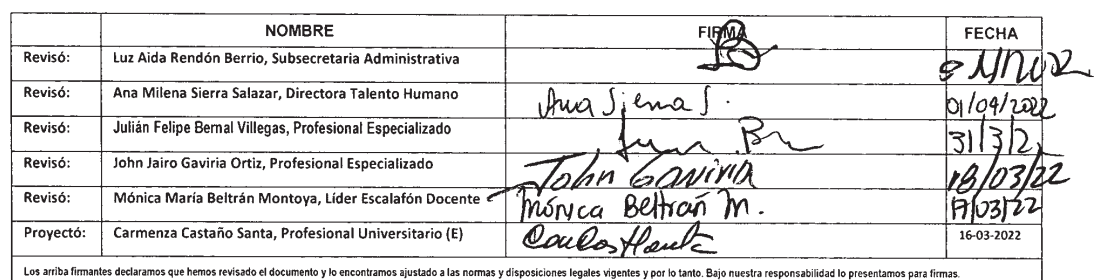 NOMBRE FIRMA FECHA
Revisó: Luz Aida Rendón Berrio, Subsecretaria Administrativa
Revisó: Ana Milena Sierra Salazar, Directora Talento Humano Ana Sierra S. 01/04/2022
Revisó: Julián Felipe Bernal Villegas, Profesional Especializado 31/3/2
Revisó: John Jairo Gaviria Ortiz, Profesional Especializado John Gaviria 18/03/22
Revisó: Mónica María Beltrán Montoya, Líder Escalafón Docente Mónica Beltrán M. 17/03/22
Proyectó: Carmenza Castaño Santa, Profesional Universitario (E) 16-03-2022
Los arriba firmantes declaramos que hemos revisado el documento y lo encontramos ajustado a las normas y disposiciones legales vigentes y por lo tanto. Bajo nuestra responsabilidad lo presentamos para firmas.